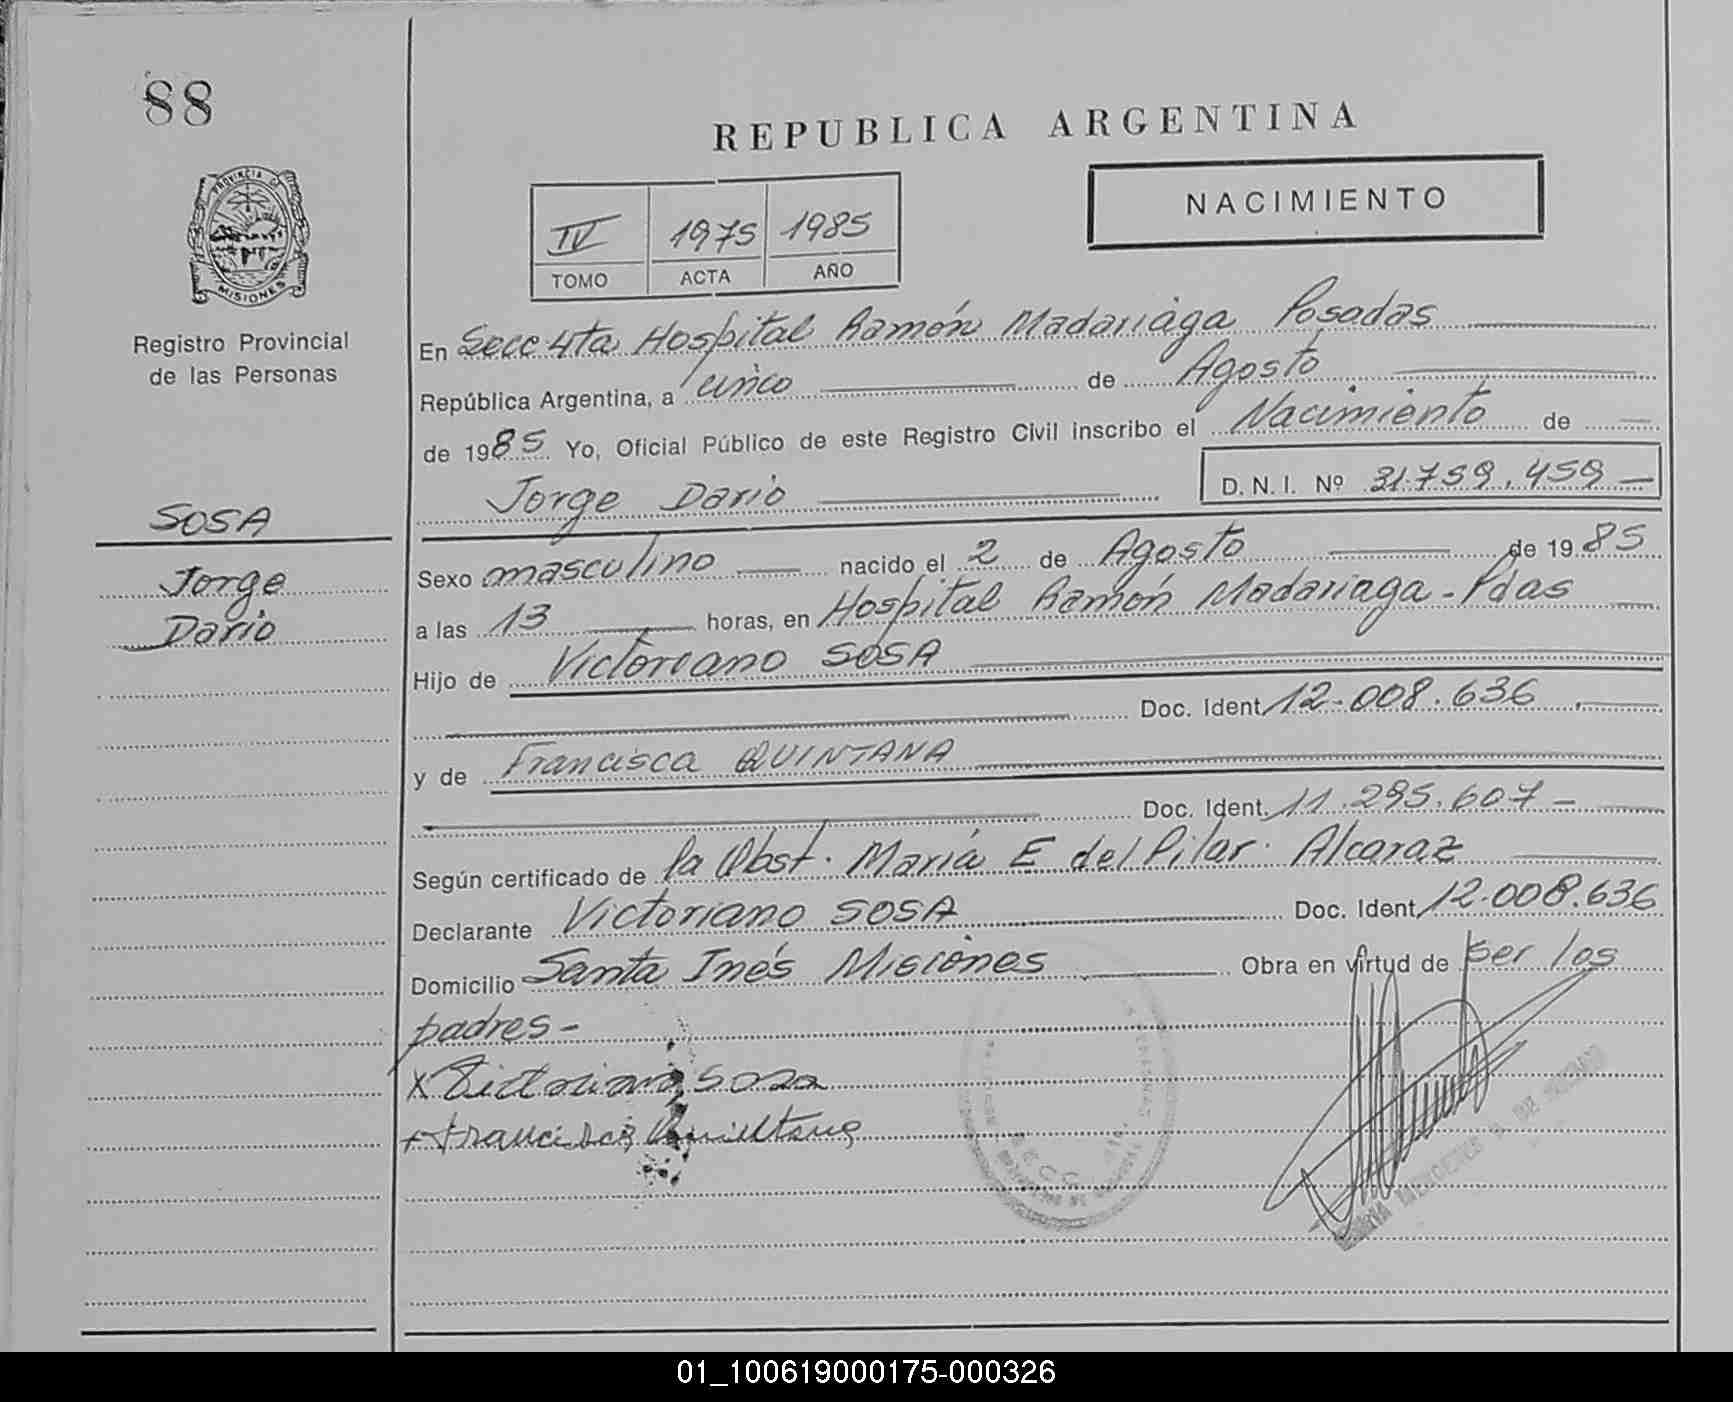 88
REPUBLICA ARGENTINA
NACIMIENTO
PROVINCIA DE
MISIONES
Registro Provincial
de las Personas
IV 1975 1985
TOMO ACTA AÑO
En Secc 4ta Hospital Ramón Madariaga Posadas
República Argentina, a cinco de Agosto
de 1985 Yo, Oficial Público de este Registro Civil inscribo el Nacimiento de
Jorge Dario D. N. I. Nº 31.759.459
SOSA
Jorge
Dario
Sexo masculino nacido el 2 de Agosto de 1985
a las 13 horas, en Hospital Ramón Madariaga - Pdas
Hijo de Victoriano SOSA
Doc. Ident. 12.008.636
y de Francisca QUINTANA
Doc. Ident. 11.295.607 -
Según certificado de la Obst. María E del Pilar Alcaraz
Declarante Victoriano SOSA Doc. Ident. 12.008.636
Domicilio Santa Inés Misiones Obra en virtud de ser los
padres -
x Victoriano Sosa
x Francisca Quintana
SECC.
01_100619000175-000326